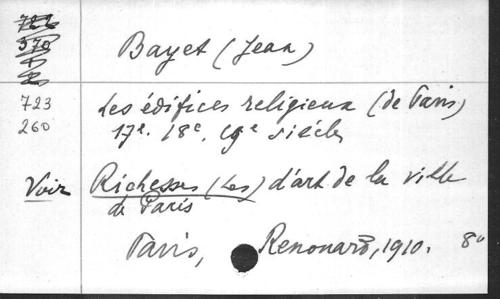 722
370
Bayet (Jean)
723
260
Les édifices religieux (de Paris)
17e. 18e. 19e siècles
Voir
Richesses (Les) d'art de la ville
de Paris
Paris, Renouard, 1910. 8°